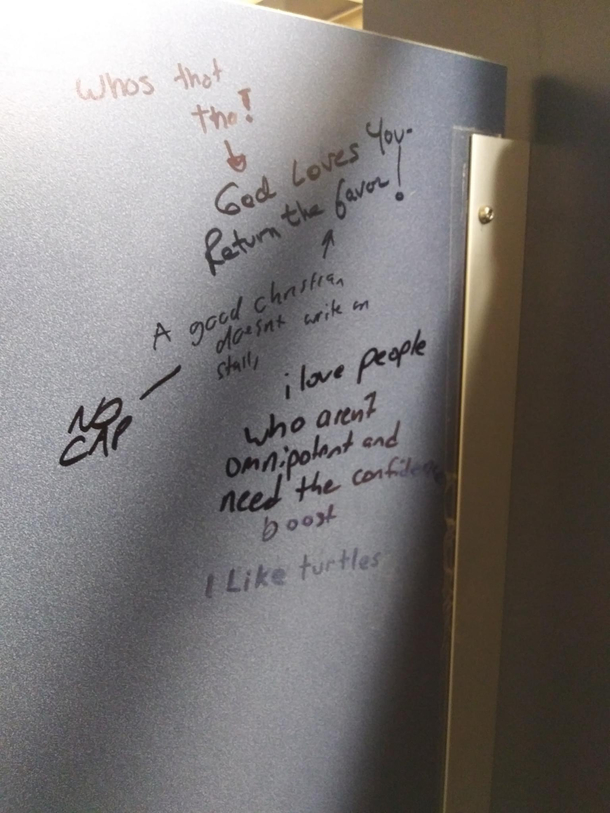 Whos that
tho!
God Loves You.
Return the favor!
A good christian
doesnt write on
stalls
NO
CAP
i love people
who aren't
omnipotent and
need the confidence
boost
I Like turtles